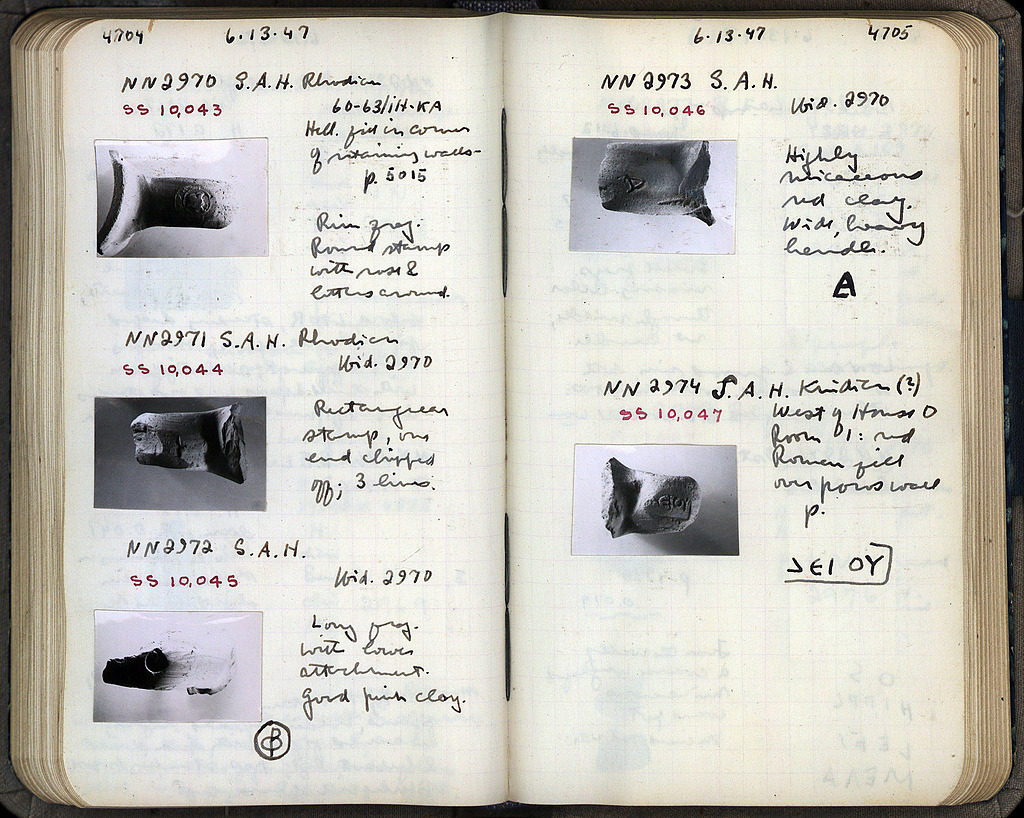 4704 6·13·47
NN2970 S.A.H. Rhodian
SS 10,043
60-63/ΙΗ-ΚΑ
Hell. fill in corner
of retaining walls-
p. 5015
Rim frag.
Round stamp
with rose &
letters around.
NN2971 S.A.H. Rhodian
SS 10,044
Ibid. 2970
Rectangular
stamp, one
end chipped
off; 3 lines.
NN2972 S.A.H.
SS 10,045
Ibid. 2970
Long frag.
with lower
attachment.
Good pink clay.
6·13·47 4705
NN2973 S.A.H.
SS 10,046
Ibid. 2970
Highly
micaceous
red clay.
Wide, heavy
handle.
A
NN 2974 S.A.H. Knidian (?)
SS 10,047
West of House D
Room 1: red
Roman fill
over poros wall
p.
ΕΙ ΟΥ